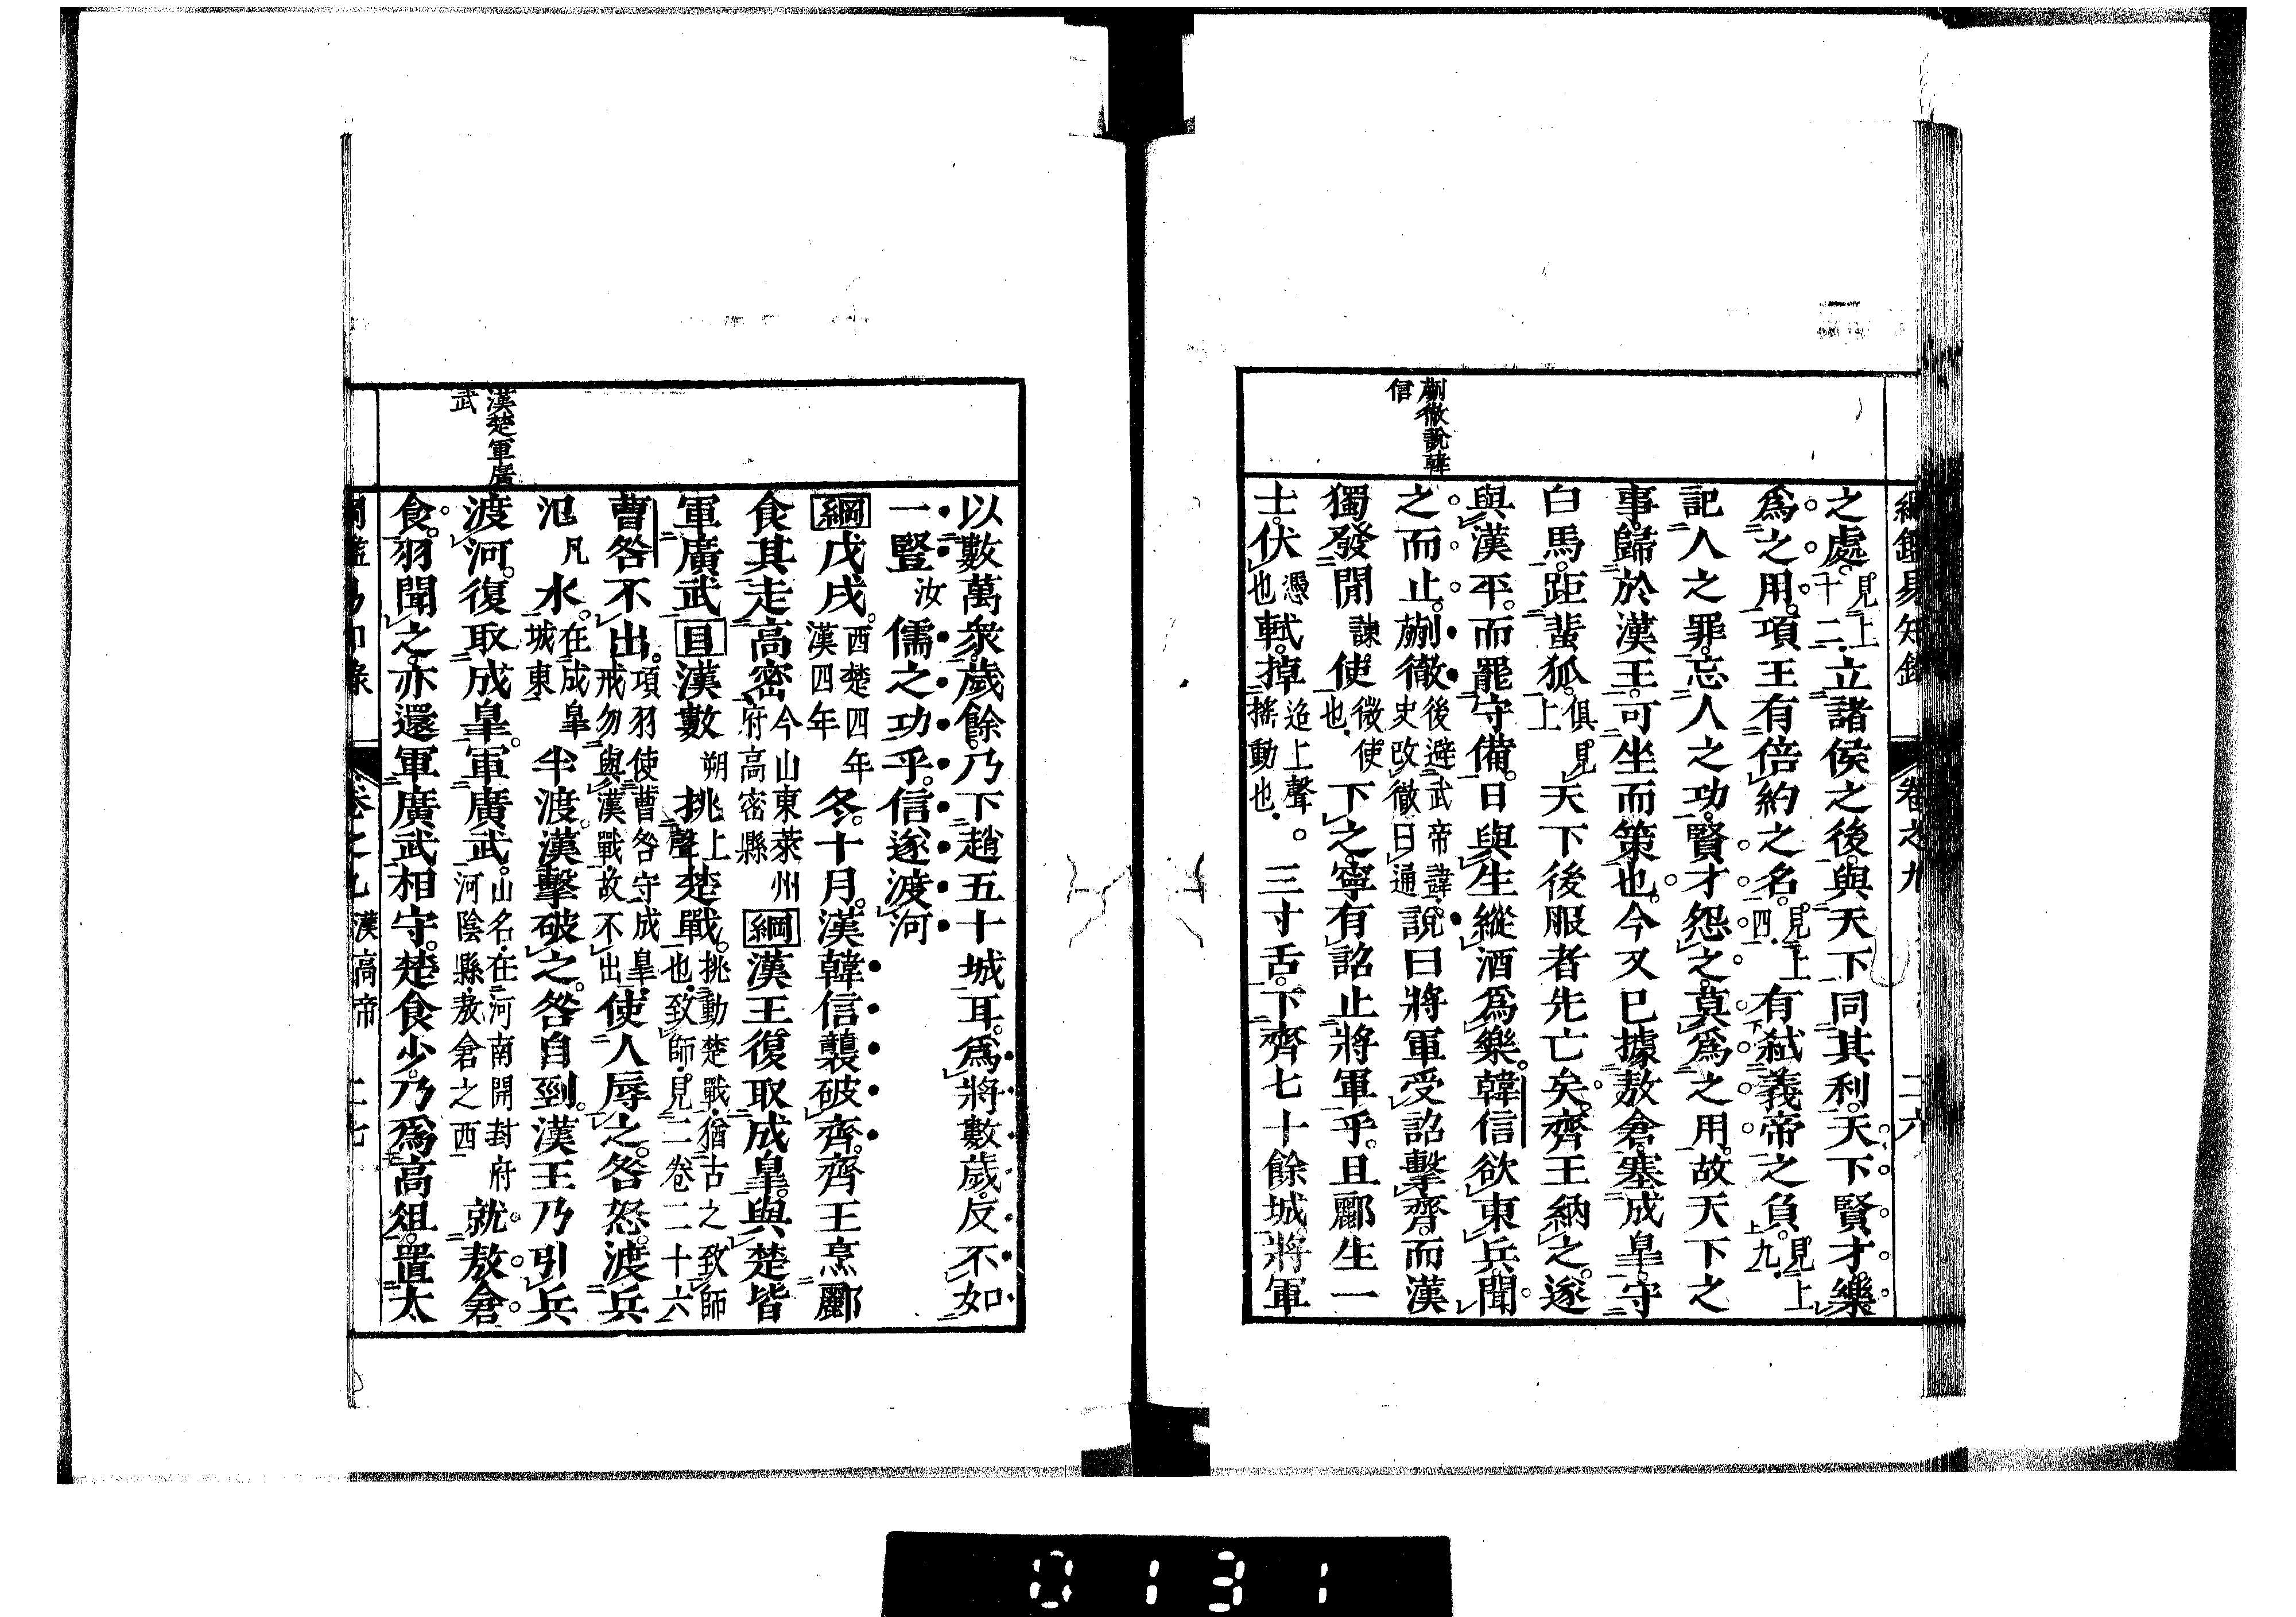 綱鑑易知錄 卷之九 二六
蒯徹說韓
信
之處見上十二立諸侯之後與天下同其利天下賢才樂
爲之用項王有倍約之名見上四有弒義帝之負見上九
記人之罪忘人之功賢才怨之莫爲之用故天下之
事歸於漢王可坐而策也今又已據敖倉塞成皐守
白馬距蜚狐俱見上天下後服者先亡矣齊王納之遂
與漢平而罷守備日與生縱酒爲樂韓信欲東兵聞
之而止蒯徹後避武帝諱史改徹曰通說曰將軍受詔擊齊而漢
獨發閒諫使徵使也下之寧有詔止將軍乎且酈生一
士伏憑也軾掉迢上聲搖動也三寸舌下齊七十餘城將軍
漢楚軍廣
武
以數萬衆歲餘乃下趙五十城耳爲將數歲反不如
一豎汝儒之功乎信遂渡河
綱戊戌西楚四年漢四年冬十月漢韓信襲破齊齊王烹酈
食其走高密今山東萊州府高密縣綱漢王復取成皐與楚皆
軍廣武目漢數朔挑上聲楚戰挑動楚戰猶古之致師也致師見二卷二十六
曹咎不出項羽使曹咎守成皐戒勿與漢戰故不出使人辱之咎怒渡兵
氾凡水在成皐城東半渡漢擊破之咎自剄漢王乃引兵
渡河復取成皐軍廣武山名在河南開封府河陰縣敖倉之西就敖倉
食羽聞之亦還軍廣武相守楚食少乃爲高俎置太
卷之九 漢高帝 二七
0131